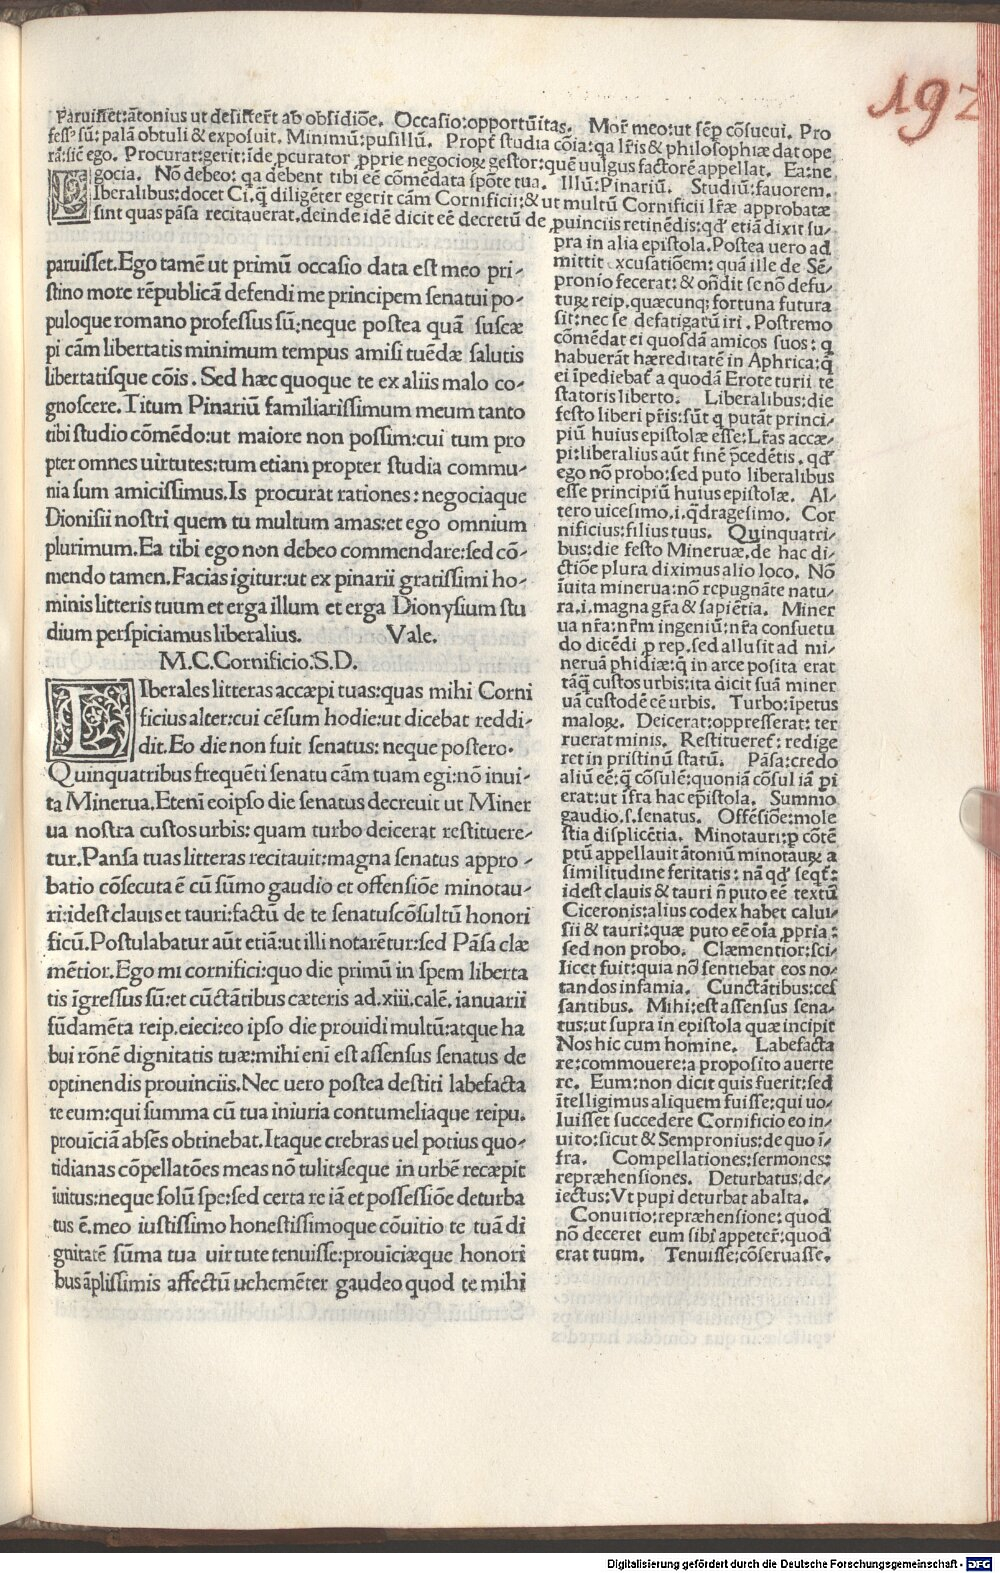 192
Paruisset:ãtonius ut desisteret̃ ab obsidiõe. Occasio:opportũitas. Mor̃ meo:ut sẽp cõsueui. Pro
fess⁹ sũ: palã obtuli & exposuit. Minimũ:pusillũ. Propt̃ studia cõia:qa lr̃is & philosophiæ dat ope
rã:sic̃ ego. Procurat:gerit:ide ꝓcurator ꝓprie negocioꝝ gestor:quẽ uulgus factorẽ appellat. Ea:ne
gocia. Nõ debeo: qa debent tibi eẽ cõmẽdata spõte tua. Illũ:Pinariũ. Studiũ:fauorem.
LIberalibus:docet Ci.ꝙ diligẽter egerit cãm Cornificii:& ut multũ Cornificii lr̃æ approbatæ
sint quas pãsa recitauerat.deinde idẽ dicit eẽ decretũ de ꝓuinciis retinẽdis:qđ etiã dixit su-
paruisset.Ego tamẽ ut primũ occasio data est meo pri-
stino more rẽpublicã defendi me principem senatui po-
puloque romano professus sũ:neque postea quã suscæ
pi cãm libertatis minimum tempus amisi tuẽdæ salutis
libertatisque cõis. Sed hæc quoque te ex aliis malo co-
gnoscere.Titum Pinariũ familiarissimum meum tanto
tibi studio cõmẽdo:ut maiore non possim:cui tum pro
pter omnes uirtutes:tum etiam propter studia commu-
nia sum amicissimus.Is procurat rationes: negociaque
Dionisii nostri quem tu multum amas:et ego omnium
plurimum.Ea tibi ego non debeo commendare:sed cõ-
mendo tamen.Facias igitur:ut ex pinarii gratissimi ho-
minis litteris tuum et erga illum et erga Dionysium stu
dium perspiciamus liberalius. Vale.
M.C.Cornificio.S.D.
LIberales litteras accæpi tuas:quas mihi Corni
ficius alter:cui cẽsum hodie:ut dicebat reddi-
dit.Eo die non fuit senatus: neque postero.
Quinquatribus frequẽti senatu cãm tuam egi:nõ inui-
ta Minerua.Etenĩ eoipso die senatus decreuit ut Miner
ua nostra custos urbis: quam turbo deicerat restituere-
tur.Pansa tuas litteras recitauit:magna senatus appro-
batio cõsecuta ẽ cũ sũmo gaudio et offensiõe minotau-
ri:idest clauis et tauri:factũ de te senatuscõsultũ honori
ficũ.Postulabatur aũt etiã:ut illi notarẽtur:sed Pãsa clæ
mẽtior.Ego mi cornifici:quo die primũ in spem liberta
tis ĩgressus sũ:et cũctãtibus cæteris ad.xiii.calẽ.ianuarii
fũdamẽta reip.eieci:eo ipso die prouidi multũ:atque ha
bui rõnẽ dignitatis tuæ:mihi eni est assensus senatus de
optinendis prouinciis.Nec uero postea destiti labefacta
re eum:qui summa cũ tua iniuria contumeliaque reipu.
prouĩciã absẽs obtinebat.Itaque crebras uel potius quo-
tidianas cõpellatões meas nõ tulit:seque in urbẽ recæpit
ĩuitus:neque solũ spe:sed certa re iã et possessiõe deturba
tus ẽ.meo iustissimo honestissimoque cõuitio te tuã di
gnitatẽ sũma tua uirtute tenuisse:prouĩciæque honori
bus ãplissimis affectũ uehemẽter gaudeo quod te mihi
pra in alia epistola.Postea uero ad
mittit excusatiõem: quã ille de Sẽ-
pronio fecerat: & oñdit se nõ defu-
tuꝝ reip.quæcunqꝫ fortuna futura
sit:nec se defatigatũ iri. Postremo
cõmẽdat ei quosdã amicos suos: q̃
habuerãt hæreditatẽ in Aphrica:q̃
ei ĩpediebat̃ a quodã Erote turii te
statoris liberto. Liberalibus:die
festo liberi pr̃is:sũt q putãt princi-
piũ huius epistolæ esse:Lr̃as accæ-
pi:liberalius aũt finẽ p̃cedẽtis.qđ
ego nõ probo:sed puto liberalibus
esse principiũ huius epistolæ. Al-
tero uicesimo.i.q̃dragesimo. Cor
nificius:filius tuus. Quinquatri-
bus:die festo Mineruæ.de hac di-
ctiõe plura diximus alio loco. Nõ
ĩuita minerua:nõ repugnãte natu-
ra.i.magna gr̃a & sapiẽtia. Miner
ua nr̃a:nr̃m ingeniũ:nr̃a consuetu
do dicẽdi ꝓ rep.sed allusit ad mi-
neruã phidiæ:q̃ in arce posita erat
tãq̃ custos urbis:ita dicit suã miner
uã custodẽ eẽ urbis. Turbo:ĩpetus
maloꝝ. Deicerat:oppresserat: ter
ruerat minis. Restitueret̃: redige
ret in pristinũ statũ. Pãsa:credo
aliũ eẽ:q̃ cõsulẽ:quoniã cõsul iã pi
erat:ut ĩfra hac ep̃istola. Summo
gaudio.s.senatus. Offẽsiõe:mole
stia displicẽtia. Minotauri:ꝑ cõtẽ
ptũ appellauit ãtoniũ minotauꝝ a
similitudine feritatis: nã qđ seqt̃:
idest clauis & tauri ñ puto eẽ textũ
Ciceronis:alius codex habet calui-
sii & tauri:quæ puto eẽ oĩa ꝓpria:
sed non probo. Clæmentior:sci-
licet fuit:quia nõ sentiebat eos no-
tandos infamia. Cunctãtibus:ces
santibus. Mihi:est assensus sena-
tus:ut supra in epistola quæ incipit
Nos hic cum homine. Labefacta
re:commouere:a proposito auerte
re. Eum:non dicit quis fuerit:sed
ĩtelligimus aliquem fuisse:qui uo-
luisset succedere Cornificio eo in-
uito:sicut & Sempronius:de quo ĩ-
fra. Compellationes:sermones:
repræhensiones. Deturbatus:de-
iectus:Vt pupi deturbat ab alta.
Conuitio:repræhensione: quod
nõ deceret eum sibi appeter̃:quod
erat tuum. Tenuisse:cõseruasse.
Digitalisierung gefördert durch die Deutsche Forschungsgemeinschaft - DFG